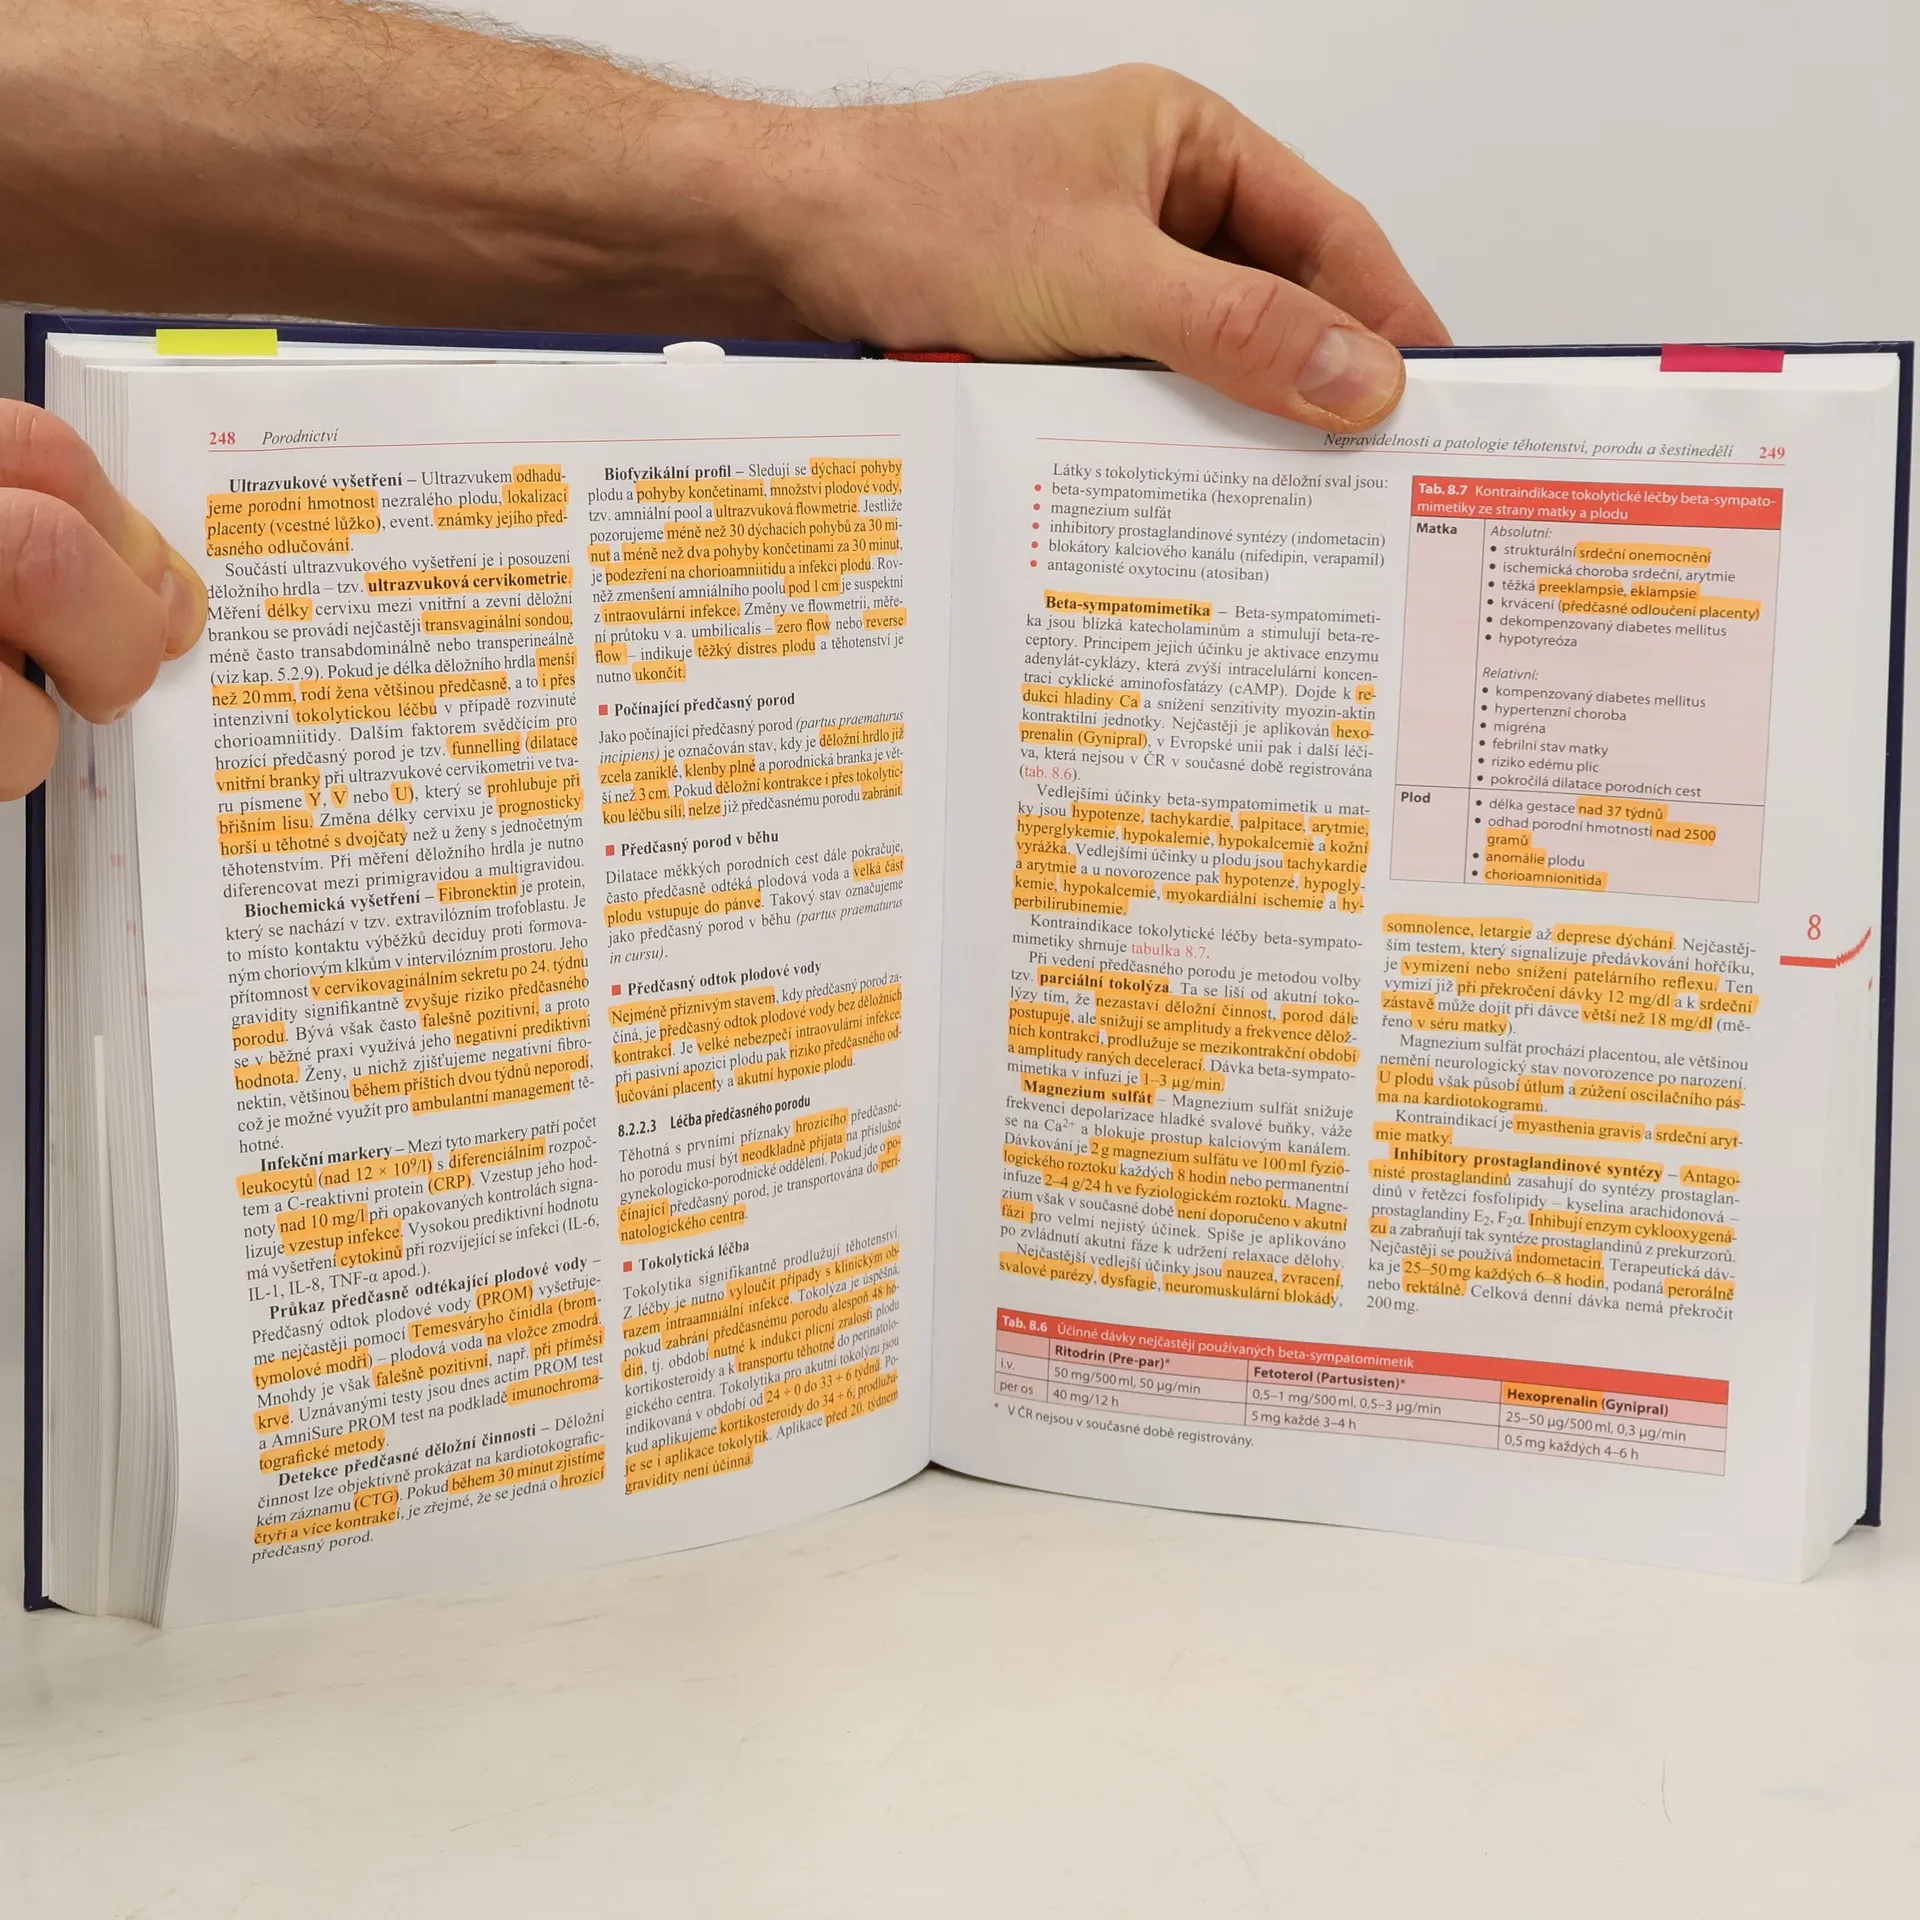 248 Porodnictví
Ultrazvukové vyšetření – Ultrazvukem odhadu-
jeme porodní hmotnost nezralého plodu, lokalizaci
placenty (vcestné lůžko), event. známky jejího před-
časného odlučování.
Součástí ultrazvukového vyšetření je i posouzení
děložního hrdla – tzv. ultrazvuková cervikometrie.
Měření délky cervixu mezi vnitřní a zevní děložní
brankou se provádí nejčastěji transvaginální sondou,
méně často transabdominálně nebo transperineálně
(viz kap. 5.2.9). Pokud je délka děložního hrdla menší
než 20 mm, rodí žena většinou předčasně, a to i přes
intenzivní tokolytickou léčbu v případě rozvinuté
chorioamniitidy. Dalším faktorem svědčícím pro
hrozící předčasný porod je tzv. funnelling (dilatace
vnitřní branky při ultrazvukové cervikometrie ve tva-
ru písmene Y, V nebo U), který se prohlubuje při
břišním lisu. Změna délky cervixu je prognosticky
horší u těhotné s dvojčaty než u ženy s jednočetným
těhotenstvím. Při měření děložního hrdla je nutno
diferencovat mezi primigravidou a multigravidou.
Biochemická vyšetření – Fibronektin je protein,
který se nachází v tzv. extravilózním trofoblastu. Je
to místo kontaktu výběžků deciduy proti formova-
ným choriovým klkům v intervilózním prostoru. Jeho
přítomnost v cervikovaginálním sekretu po 24. týdnu
gravidity signifikantně zvyšuje riziko předčasného
porodu. Bývá však často falešně pozitivní, a proto
se v běžné praxi využívá jeho negativní prediktivní
hodnota. Ženy, u nichž zjišťujeme negativní fibro-
nektin, většinou během příštích dvou týdnů neporodí,
což je možné využít pro ambulantní management tě-
hotné.
Infekční markery – Mezi tyto markery patří počet
leukocytů (nad 12 × 10⁹/l) s diferenciálním rozpoč-
tem a C-reaktivní protein (CRP). Vzestup jeho hod-
noty nad 10 mg/l při opakovaných kontrolách signa-
lizuje vzestup infekce. Vysokou prediktivní hodnotu
má vyšetření cytokinů při rozvíjející se infekci (IL-6,
IL-1, IL-8, TNF-α apod.).
Průkaz předčasně odtékající plodové vody –
Předčasný odtok plodové vody (PROM) vyšetřuje-
me nejčastěji pomocí Temesváryho činidla (brom-
tymolové modři) – plodová voda na vložce zmodrá.
Mnohdy je však falešně pozitivní, např. při příměsi
krve. Uznávanými testy jsou dnes actim PROM test
a AmniSure PROM test na podkladě imunochroma-
tografické metody.
Detekce předčasné děložní činnosti – Děložní
činnost lze objektivně prokázat na kardiotokografic-
kém záznamu (CTG). Pokud během 30 minut zjistíme
čtyři a více kontrakcí, je zřejmé, že se jedná o hrozící
předčasný porod.
Biofyzikální profil – Sledují se dýchací pohyby
plodu a pohyby končetinami, množství plodové vody,
tzv. amniální pool a ultrazvuková flowmetrie. Jestliže
pozorujeme méně než 30 dýchacích pohybů za 30 mi-
nut a méně než dva pohyby končetinami za 30 minut,
je podezření na chorioamniitidu a infekci plodu. Rov-
něž zmenšení amniálního poolu pod 1 cm je suspektní
z intraovulární infekce. Změny ve flowmetrii, měře-
ní průtoku v a. umbilicalis – zero flow nebo reverse
flow – indikuje těžký distres plodu a těhotenství je
nutno ukončit.
Počínající předčasný porod
Jako počínající předčasný porod (partus praematurus
incipiens) je označován stav, kdy je děložní hrdlo již
zcela zaniklé, klenby plné a porodnická branka je vět-
ší než 3 cm. Pokud děložní kontrakce i přes tokolytic-
kou léčbu sílí, nelze již předčasnému porodu zabránit.
Předčasný porod v běhu
Dilatace měkkých porodních cest dále pokračuje,
často předčasně odtéká plodová voda a velká část
plodu vstupuje do pánve. Takový stav označujeme
jako předčasný porod v běhu (partus praematurus
in cursu).
Předčasný odtok plodové vody
Nejméně příznivým stavem, kdy předčasný porod za-
číná, je předčasný odtok plodové vody bez děložních
kontrakcí. Je velké nebezpečí intraovulární infekce,
při pasivní apozici plodu pak riziko předčasného od-
lučování placenty a akutní hypoxie plodu.
8.2.2.3 Léčba předčasného porodu
Těhotná s prvními příznaky hrozícího předčasné-
ho porodu musí být neodkladně přijata na příslušné
gynekologicko-porodnické oddělení. Pokud jde o po-
čínající předčasný porod, je transportována do peri-
natologického centra.
Tokolytická léčba
Tokolytika signifikantně prodlužují těhotenství.
Z léčby je nutno vyloučit případy s klinickým ob-
razem intraamniální infekce. Tokolýza je úspěšná,
pokud zabrání předčasnému porodu alespoň 48 ho-
din, tj. období nutné k indukci plicní zralosti plodu
kortikosteroidy a k transportu těhotné do perinatolo-
gického centra. Tokolytika pro akutní tokolýzu jsou
indikovaná v období od 24 + 0 do 33 + 6 týdnů. Po-
kud aplikujeme kortikosteroidy do 34 + 6, prodlužu-
je se i aplikace tokolytik. Aplikace před 20. týdnem
gravidity není účinná.
Nepravidelnosti a patologie těhotenství, porodu a šestinedělí 249
Látky s tokolytickými účinky na děložní sval jsou:
• beta-sympatomimetika (hexoprenalin)
• magnezium sulfát
• inhibitory prostaglandinové syntézy (indometacin)
• blokátory kalciového kanálu (nifedipin, verapamil)
• antagonisté oxytocinu (atosiban)
Beta-sympatomimetika – Beta-sympatomimeti-
ka jsou blízká katecholaminům a stimulují beta-re-
ceptory. Principem jejich účinku je aktivace enzymu
adenylát-cyklázy, která zvýší intracelulární koncen-
traci cyklické aminofosfatázy (cAMP). Dojde k re-
dukci hladiny Ca a snížení senzitivity myozin-aktin
kontraktilní jednotky. Nejčastěji je aplikován hexo-
prenalin (Gynipral), v Evropské unii pak i další léči-
va, která nejsou v ČR v současné době registrována
(tab. 8.6).
Vedlejšími účinky beta-sympatomimetik u mat-
ky jsou hypotenze, tachykardie, palpitace, arytmie,
hyperglykemie, hypokalemie, hypokalcemie a kožní
vyrážka. Vedlejšími účinky u plodu jsou tachykardie
a arytmie a u novorozence pak hypotenze, hypogly-
kemie, hypokalcemie, myokardiální ischemie a hy-
perbilirubinemie.
Kontraindikace tokolytické léčby beta-sympato-
mimetiky shrnuje tabulka 8.7.
Při vedení předčasného porodu je metodou volby
tzv. parciální tokolýza. Ta se liší od akutní toko-
lýzy tím, že nezastaví děložní činnost, porod dále
postupuje, ale snižují se amplitudy a frekvence dělož-
ních kontrakcí, prodlužuje se mezikontrakční období
a amplitudy raných decelerací. Dávka beta-sympato-
mimetika v infuzi je 1–3 µg/min.
Magnezium sulfát – Magnezium sulfát snižuje
frekvenci depolarizace hladké svalové buňky, váže
se na Ca²⁺ a blokuje prostup kalciovým kanálem.
Dávkování je 2 g magnezium sulfátu ve 100 ml fyzio-
logického roztoku každých 8 hodin nebo permanentní
infuze 2–4 g/24 h ve fyziologickém roztoku. Magne-
zium však v současné době není doporučeno v akutní
fázi pro velmi nejistý účinek. Spíše je aplikováno
po zvládnutí akutní fáze k udržení relaxace dělohy.
Nejčastější vedlejší účinky jsou nauzea, zvracení,
svalové parézy, dysfagie, neuromuskulární blokády,
Tab. 8.7 Kontraindikace tokolytické léčby beta-sympato-
mimetiky ze strany matky a plodu
Matka Absolutní:
• strukturální srdeční onemocnění
• ischemická choroba srdeční, arytmie
• těžká preeklampsie, eklampsie
• krvácení (předčasné odloučení placenty)
• dekompenzovaný diabetes mellitus
• hypotyreóza
Relativní:
• kompenzovaný diabetes mellitus
• hypertenzní choroba
• migréna
• febrilní stav matky
• riziko edému plic
• pokročilá dilatace porodních cest
Plod • délka gestace nad 37 týdnů
• odhad porodní hmotnosti nad 2500
gramů
• anomálie plodu
• chorioamnionitida
8
somnolence, letargie až deprese dýchání. Nejčastěj-
ším testem, který signalizuje předávkování hořčíku,
je vymizení nebo snížení patelárního reflexu. Ten
vymizí již při překročení dávky 12 mg/dl a k srdeční
zástavě může dojít při dávce větší než 18 mg/dl (mě-
řeno v séru matky).
Magnezium sulfát prochází placentou, ale většinou
nemění neurologický stav novorozence po narození.
U plodu však působí útlum a zúžení oscilačního pás-
ma na kardiotokogramu.
Kontraindikací je myasthenia gravis a srdeční aryt-
mie matky.
Inhibitory prostaglandinové syntézy – Antago-
nisté prostaglandinů zasahují do syntézy prostaglan-
dinů v řetězci fosfolipidy – kyselina arachidonová –
prostaglandiny E₂, F₂α. Inhibují enzym cyklooxygená-
zu a zabraňují tak syntéze prostaglandinů z prekurzorů.
Nejčastěji se používá indometacin. Terapeutická dáv-
ka je 25–50 mg každých 6–8 hodin, podaná perorálně
nebo rektálně. Celková denní dávka nemá překročit
200 mg.
Tab. 8.6 Účinné dávky nejčastěji používaných beta-sympatomimetik
Ritodrin (Pre-par)* Fetoterol (Partusisten)* Hexoprenalin (Gynipral)
i.v. 50 mg/500 ml, 50 µg/min 0,5–1 mg/500 ml, 0,5–3 µg/min 25–50 µg/500 ml, 0,3 µg/min
per os 40 mg/12 h 5 mg každé 3–4 h 0,5 mg každých 4–6 h
* V ČR nejsou v současné době registrovány.